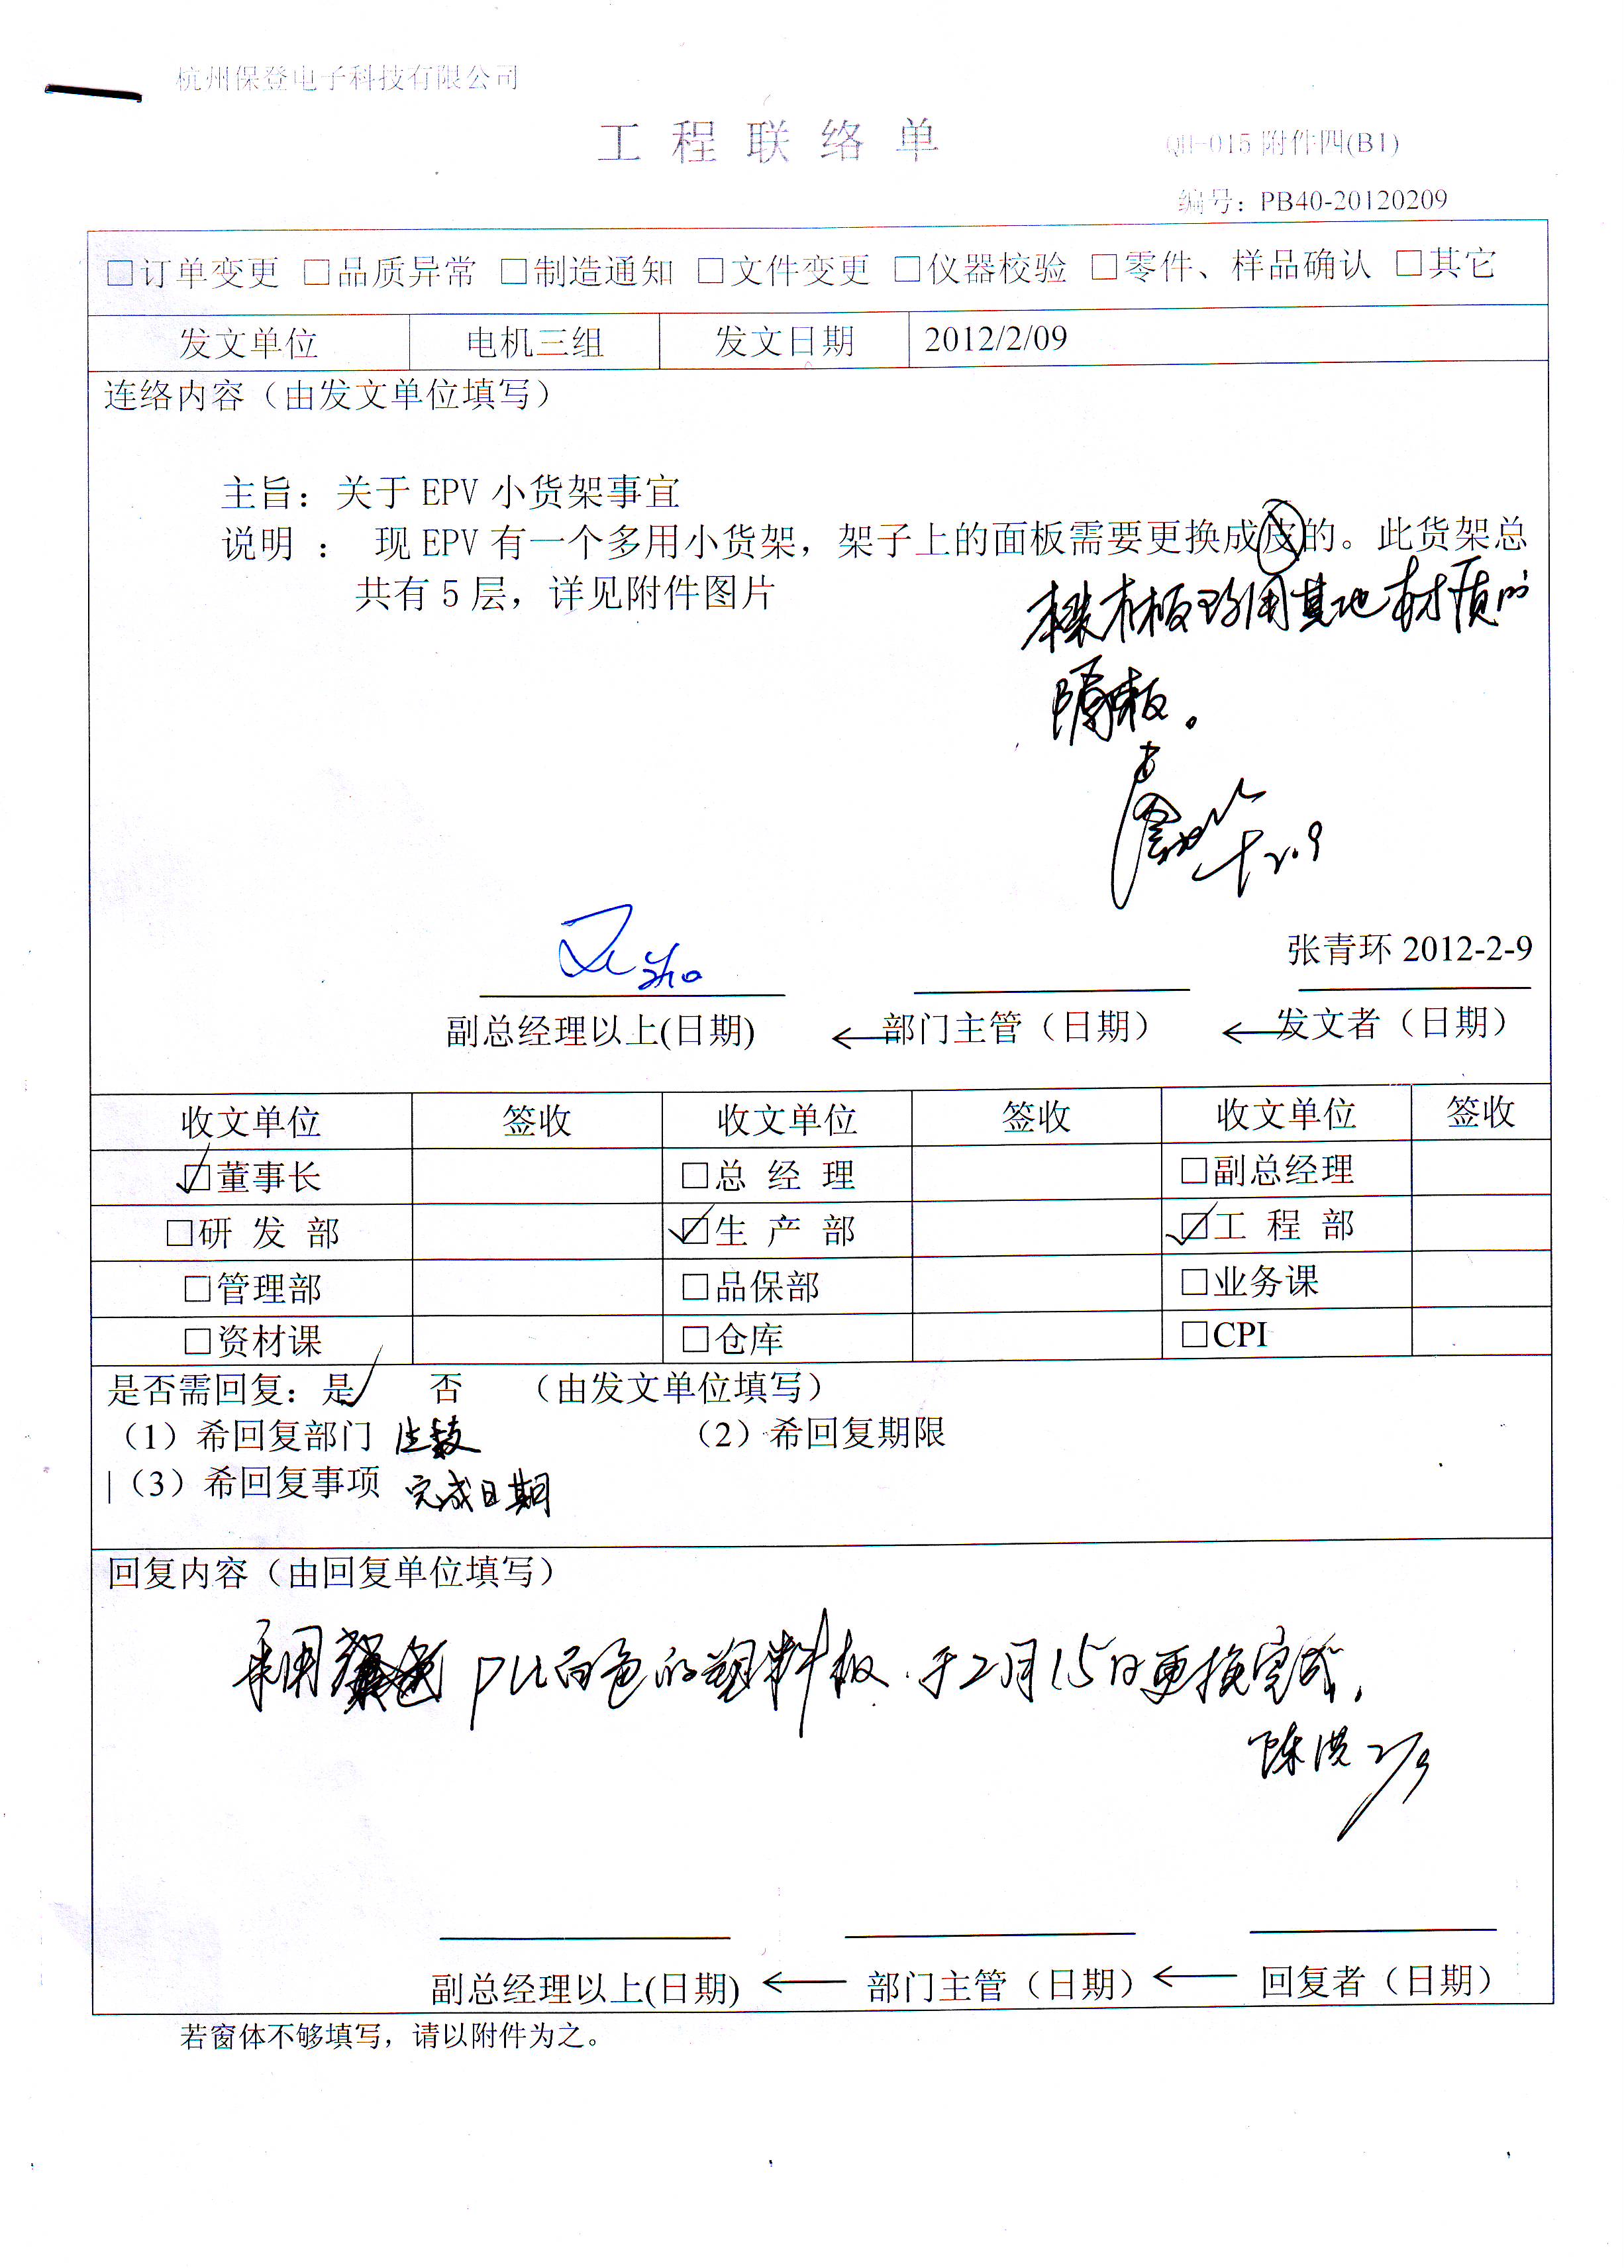 杭州保登电子科技有限公司
工程联络单
QH-015 附件四(B1)
编号：PB40-20120209
□订单变更 □品质异常 □制造通知 □文件变更 □仪器校验 □零件、样品确认 □其它
发文单位 电机三组 发文日期 2012/2/09
连络内容（由发文单位填写）
主旨：关于 EPV 小货架事宜
说明 ： 现 EPV 有一个多用小货架，架子上的面板需要更换成皮的。此货架总
共有 5 层，详见附件图片
用其他材质的
隔板。
2.9
张青环 2012-2-9
副总经理以上(日期) ← 部门主管（日期） ← 发文者（日期）
收文单位 签收 收文单位 签收 收文单位 签收
☑董事长 □总 经 理 □副总经理
□研 发 部 ☑生 产 部 ☑工 程 部
□管理部 □品保部 □业务课
□资材课 □仓库 □CPI
是否需回复：是√ 否 （由发文单位填写）
（1）希回复部门 （2）希回复期限
（3）希回复事项 完成日期
回复内容（由回复单位填写）
采用 PU白色的塑料板.于2月15日更换完成.
陈洪 2/9
副总经理以上(日期) ← 部门主管（日期） ← 回复者（日期）
若窗体不够填写，请以附件为之。